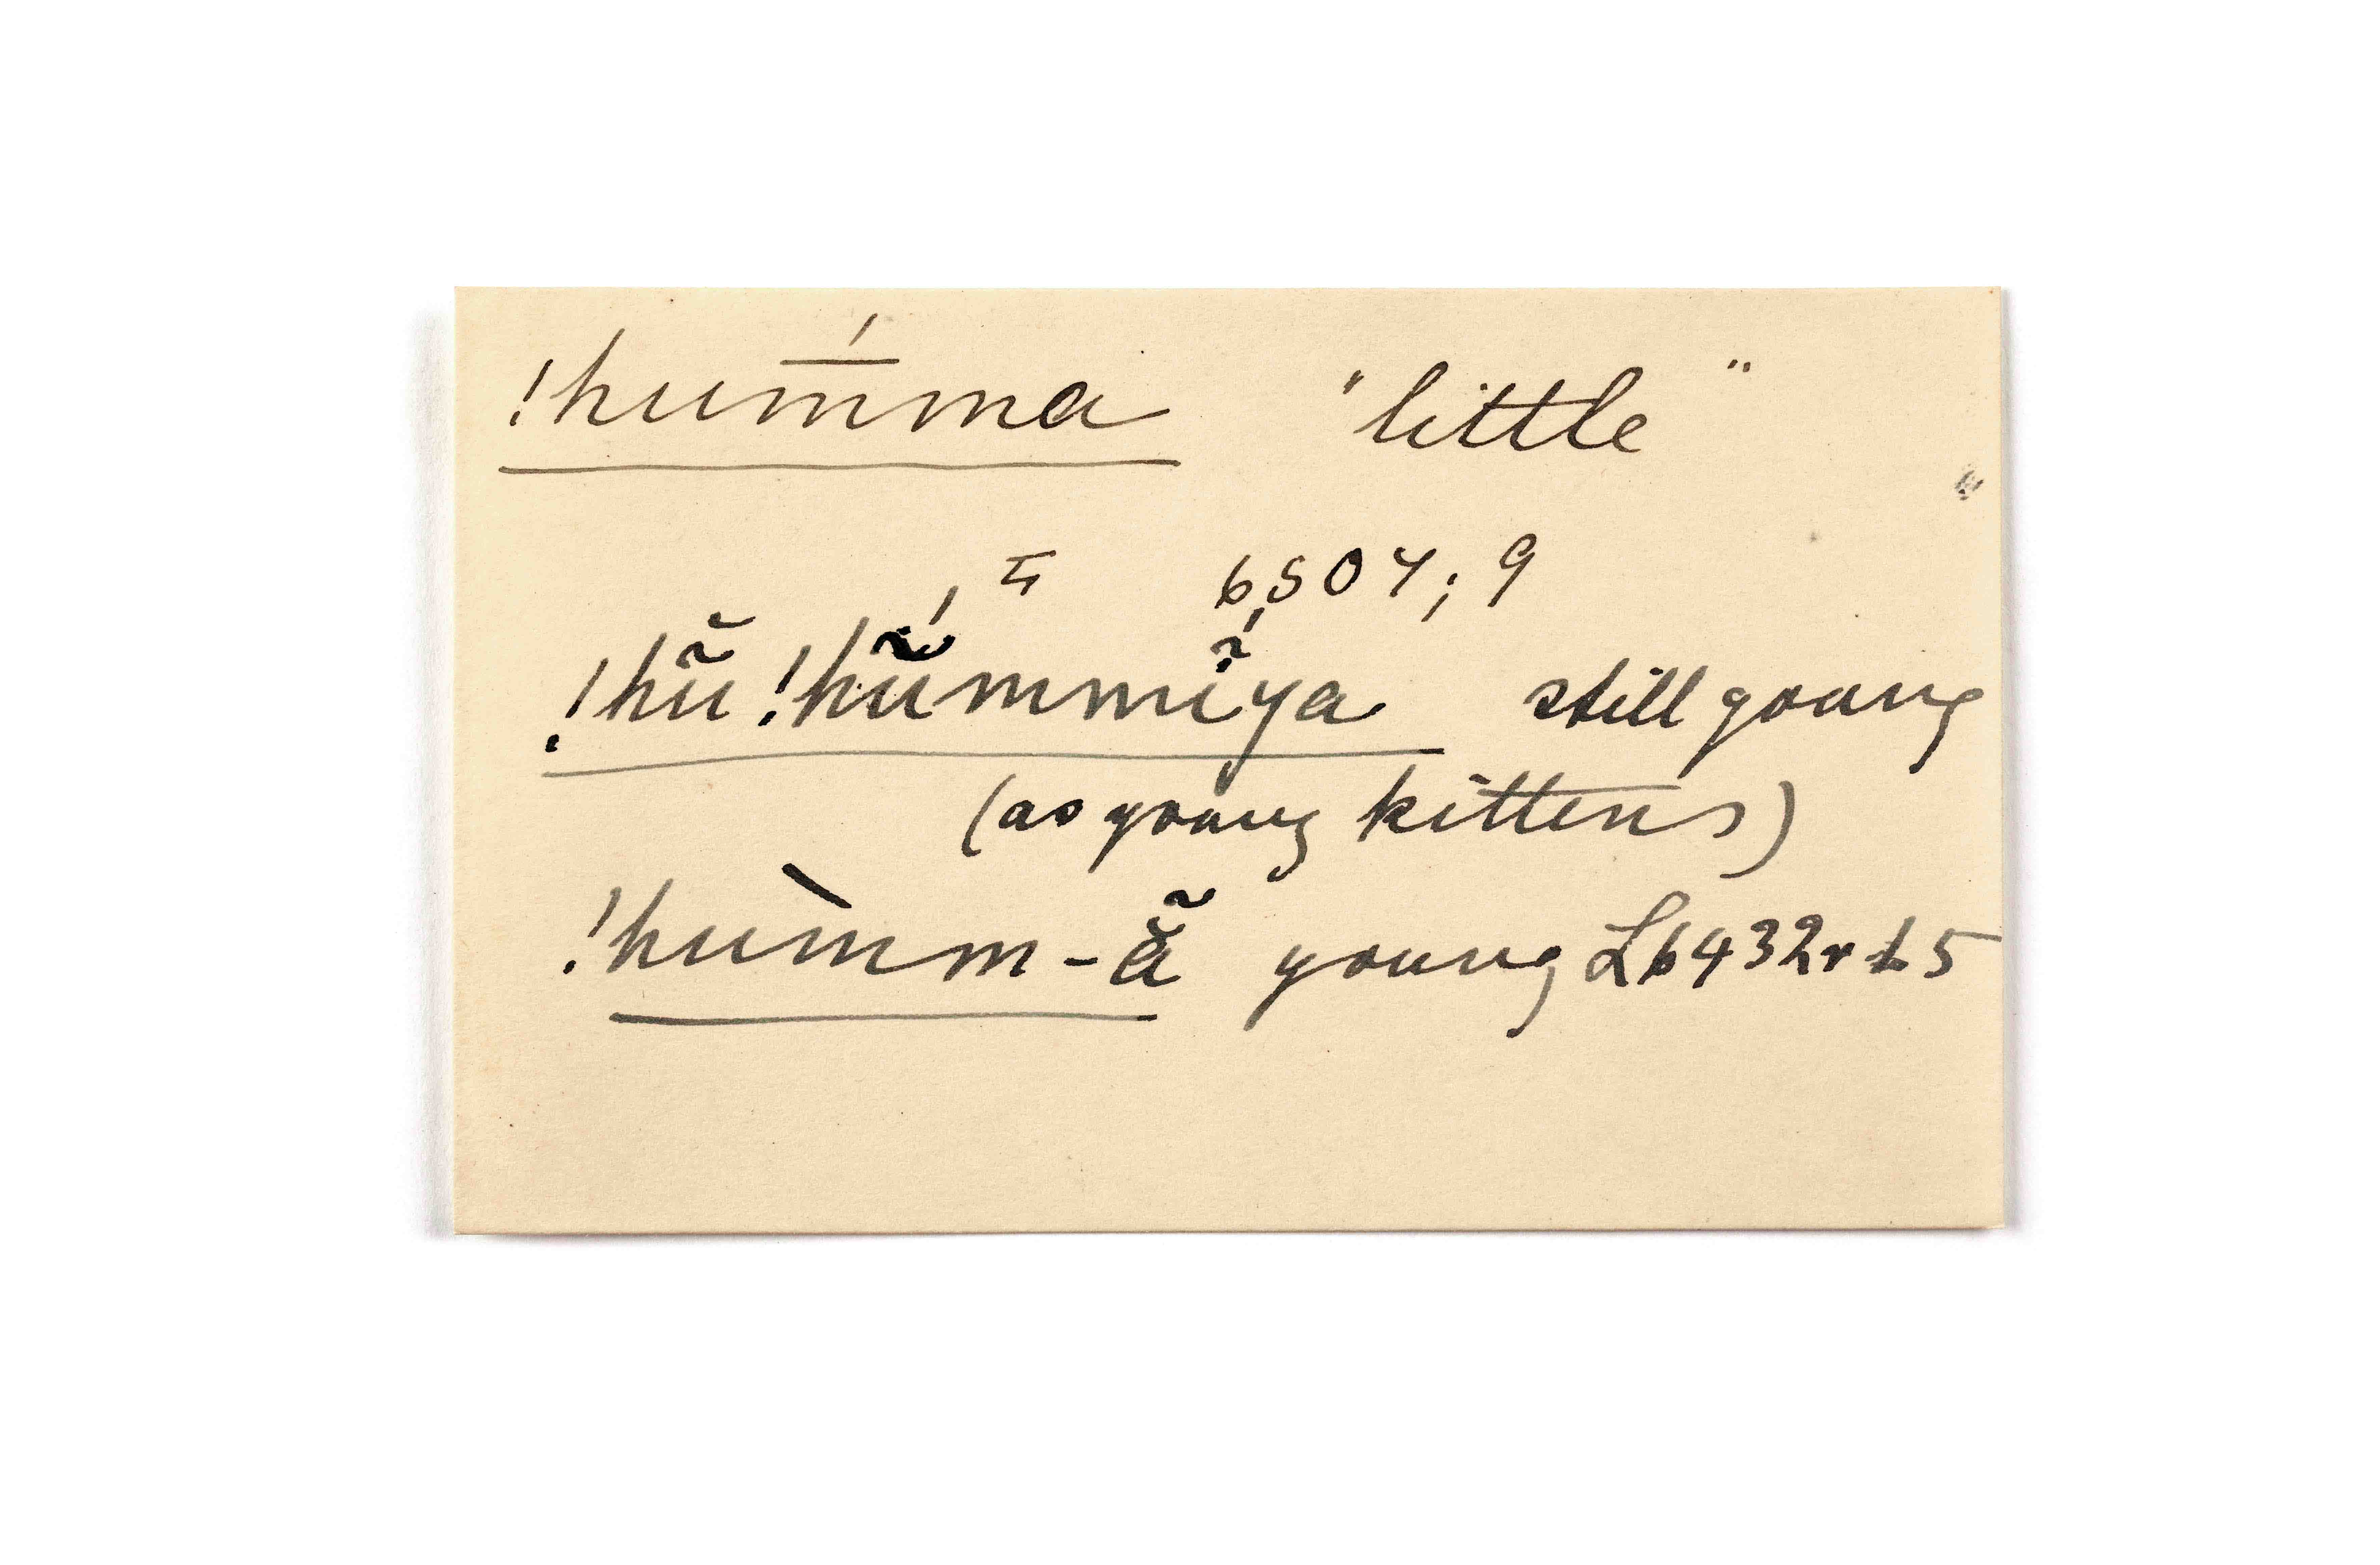 !hum̄́ma "little"
II 6504; 9
!hü̃!hü̃́mmĩ́ya still young
(as young kittens)
!hum̀m-ẵ young L6432r L5